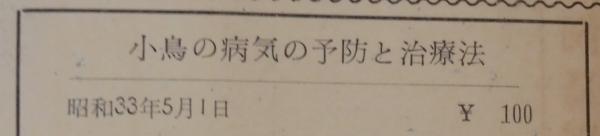 小鳥の病気の予防と治療法
昭和33年5月1日 ¥ 100